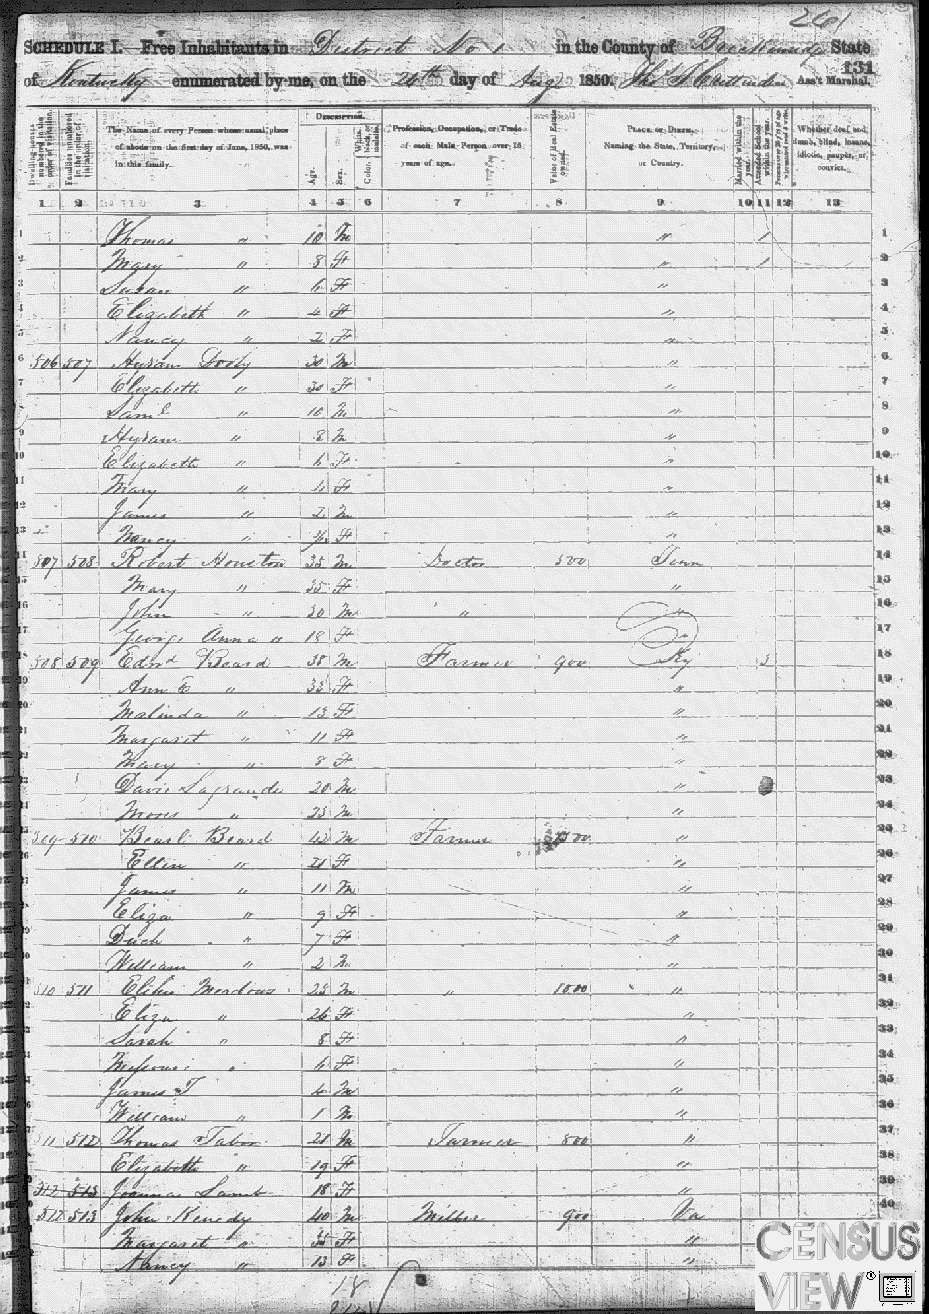 261
SCHEDULE I. Free Inhabitants in District No 1 in the County of Breckinridge State
131
of Kentucky enumerated by me, on the 24th day of Aug 1850. Ass't Marshal.
DESCRIPTION.
Dwelling-houses numbered in the order of visitation.
Families numbered in the order of visitation.
The Name of every Person whose usual place of abode on the first day of June, 1850, was in this family.
Age.
Sex.
Color. White, black, or mulatto.
Profession, Occupation, or Trade of each Male Person over 15 years of age.
Value of Real Estate owned.
PLACE OF BIRTH. Naming the State, Territory, or Country.
Married within the year.
Attended School within the year.
Persons over 20 y'rs of age who cannot read & write.
Whether deaf and dumb, blind, insane, idiotic, pauper, or convict.
1 2 3 4 5 6 7 8 9 10 11 12 13
1 Thomas " 10 M " 1 1
2 Mary " 8 F " 1 2
3 Susan " 6 F " 3
4 Elizabeth " 4 F " 4
5 Nancy " 2 F " 5
6 506 507 Hyram Dooly 30 M " 6
7 Elizabeth " 30 F " 7
8 Saml " 10 M " 8
9 Hyram " 8 M " 9
10 Elizabeth " 6 F " 10
11 Mary " 4 F " 11
12 James " 2 M " 12
13 Nancy " F " 13
14 507 508 Robert Houston 35 M Doctor 500 Tenn 14
15 Mary " 35 F " 15
16 John " 30 M " " 16
17 George Anna " 18 F " 17
18 508 509 Edwd Beard 38 M Farmer 900 Ky 3 18
19 Ann E " 33 F " 19
20 Malinda " 13 F " 20
21 Margaret " 11 F " 21
22 Mary " 8 F " 22
23 Davis Lagrande 20 M " 23
24 Moses " 23 M " 24
25 509 510 Beard 42 M Farmer " 25
26 Ellen " 21 F " 26
27 James " 11 M " 27
28 Eliza " 9 F " 28
29 Duch " 7 F " 29
30 William " 2 M " 30
31 510 511 Elihu Meadows 25 M " 1000 " 31
32 Eliza " 26 F " 32
33 Sarah " 8 F " 33
34 Missouri " 6 F " 34
35 James T 4 M " 35
36 William " 1 M " 36
37 511 512 Thomas Tabor 21 M Farmer 800 " 37
38 Elizabeth " 19 F " 38
39 512 513 Joanna Lamb 18 F " 39
40 512 513 John Kenedy 40 M Miller 900 Va 40
Margaret " 35 F "
Nancy " 13 F "
18
CENSUS
VIEW®